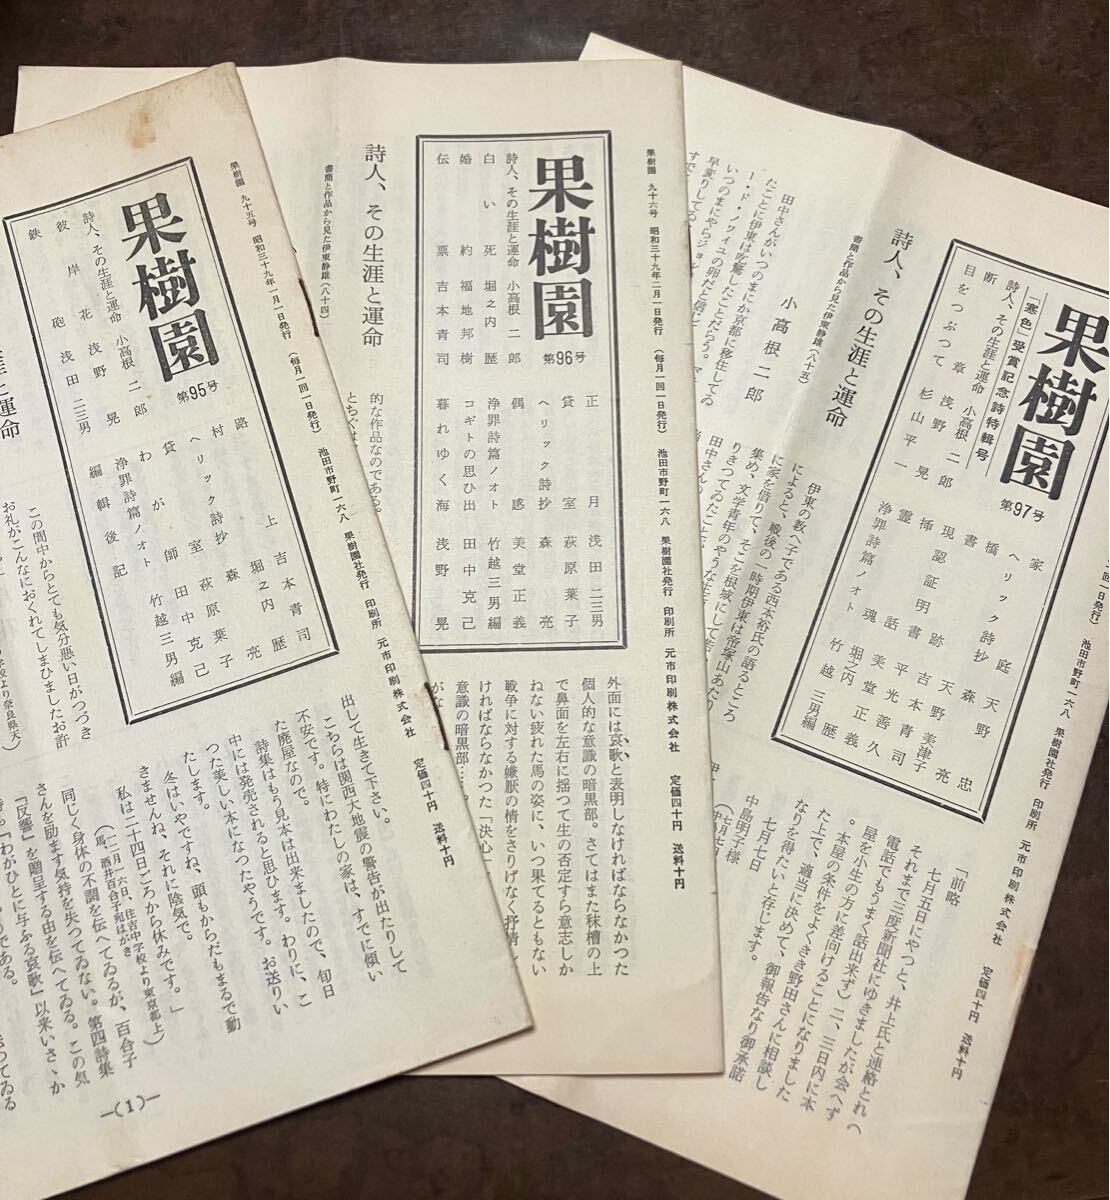 果樹園 九十五号 昭和三十九年一月一日発行 (毎月一回一日発行) 池田市野町一六八 果樹園社発行 印刷所 元市印刷株式会社 定価四十円 送料十円
果樹園
第95号
詩人、その生涯と運命 小高根二郎
彼岸花 浅野晃
鉄砲 浅田二三男
路上 吉本青司
村 堀之内歴
ヘリック詩抄 森亮
貸室 萩原葉子
わが師 田中克己
浄罪詩篇ノオト 竹越三男編
編輯後記
この間中からとても気分悪い日がつづき
お礼がこんなにおくれてしまひましたお許
出して生きて下さい。
こちらは関西大地震の警告が出たりして
不安です。特にわたしの家は、すでに傾い
た廃屋なので。
詩集はもう見本は出来ましたので、旬日
中には発売されると思ひます。わりに、こ
つた美しい本になつたやうです。お送りい
たします。
冬はいやですね、頭もからだもまるで動
きませんね、それに陰気で。
私は二十四日ごろから休みです。」
(十二月一六日、住吉中学校より東京都上
馬、酒井百合子宛はがき)
同じく身体の不調を伝へてゐるが、百合子
さんを励ます気持を失つてゐない。第四詩集
『反響』を贈呈する由を伝へてゐる。この気
『わがひとに与ふる哀歌』以来いさゝか
―(1)―
果樹園 九十六号 昭和三十九年二月一日発行 (毎月一回一日発行) 池田市野町一六八 果樹園社発行 印刷所 元市印刷株式会社 定価四十円 送料十円
果樹園
第96号
詩人、その生涯と運命 小高根二郎
白い死 堀之内歴
婚約 福地邦樹
伝票 吉本青司
正月 浅田二三男
貸室 萩原葉子
ヘリック詩抄 森亮
偶感 美堂正義
浄罪詩篇ノオト 竹越三男編
コギトの思ひ出 田中克己
暮れゆく海 浅野晃
詩人、その生涯と運命
書簡と作品から見た伊東静雄(八十四)
的な作品なのである。
外面には哀歌と表明しなければならなかつた
個人的な意識の暗黒部。さてはまた秣槽の上
で鼻面を左右に揺つて生の否定すら意志しか
ねない疲れた馬の姿に、いつ果てるともない
戦争に対する嫌厭の情をさりげなく抒情し
ければならなかつた「決心」
意識の暗黒部……。
果樹園
「寒色」受賞記念詩特輯号
第97号
詩人、その生涯と運命 小高根二郎
断章 浅野晃
目をつぶつて 杉山平一
家庭 天野忠
ヘリック詩抄 森亮
橋跡 天野美津子
現認証明書 吉本青司
挿話 平光善久
霊魂 美堂正義
堀之内歴
浄罪詩篇ノオト 竹越三男編
池田市野町一六八 果樹園社発行 印刷所 元市印刷株式会社 定価四十円 送料十円
詩人、その生涯と運命
書簡と作品から見た伊東静雄(八十五)
小高根二郎
田中さんがいつのまにか京都に移住してゐ
たことに伊東は吃驚したことだらう。
伊東の教へ子である西本裕氏の語るところ
によると、戦後の一時期伊東は帝塚山あたり
に家を借りて、そこを根城にして若い
集め、文学青年のやうな生
りきつてゐた
「前略
七月五日にやつと、井上氏と連絡とれ
それまで三度新聞社にゆきましたが会へず
電話でもうまく話出来ず)二、三日内に本
屋を小生の方に差向けることになりました
。本屋の条件をよくきき野田さんに相談し
た上で、適当に決めて、御報告なり御承諾
なりを得たいと存じます。
七月七日
中島明子様